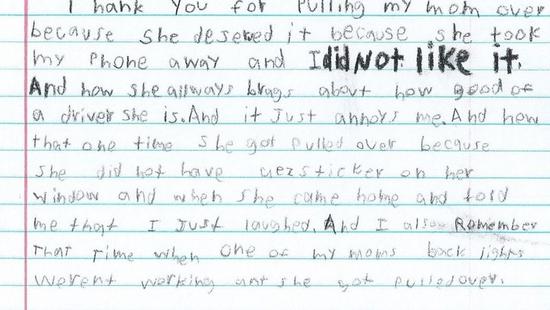 Thank you for pulling my mom over
because she deserved it because she took
my phone away and I did Not like it.
And how she allways brags about how good of
a driver she is. And it Just annoys me. And how
that one time she got pulled over because
she did not have sticker on her
window and when she came home and told
me that I Just laughed. And I also Remember
That Time when one of my moms back lights
werent working and she got pulled over.